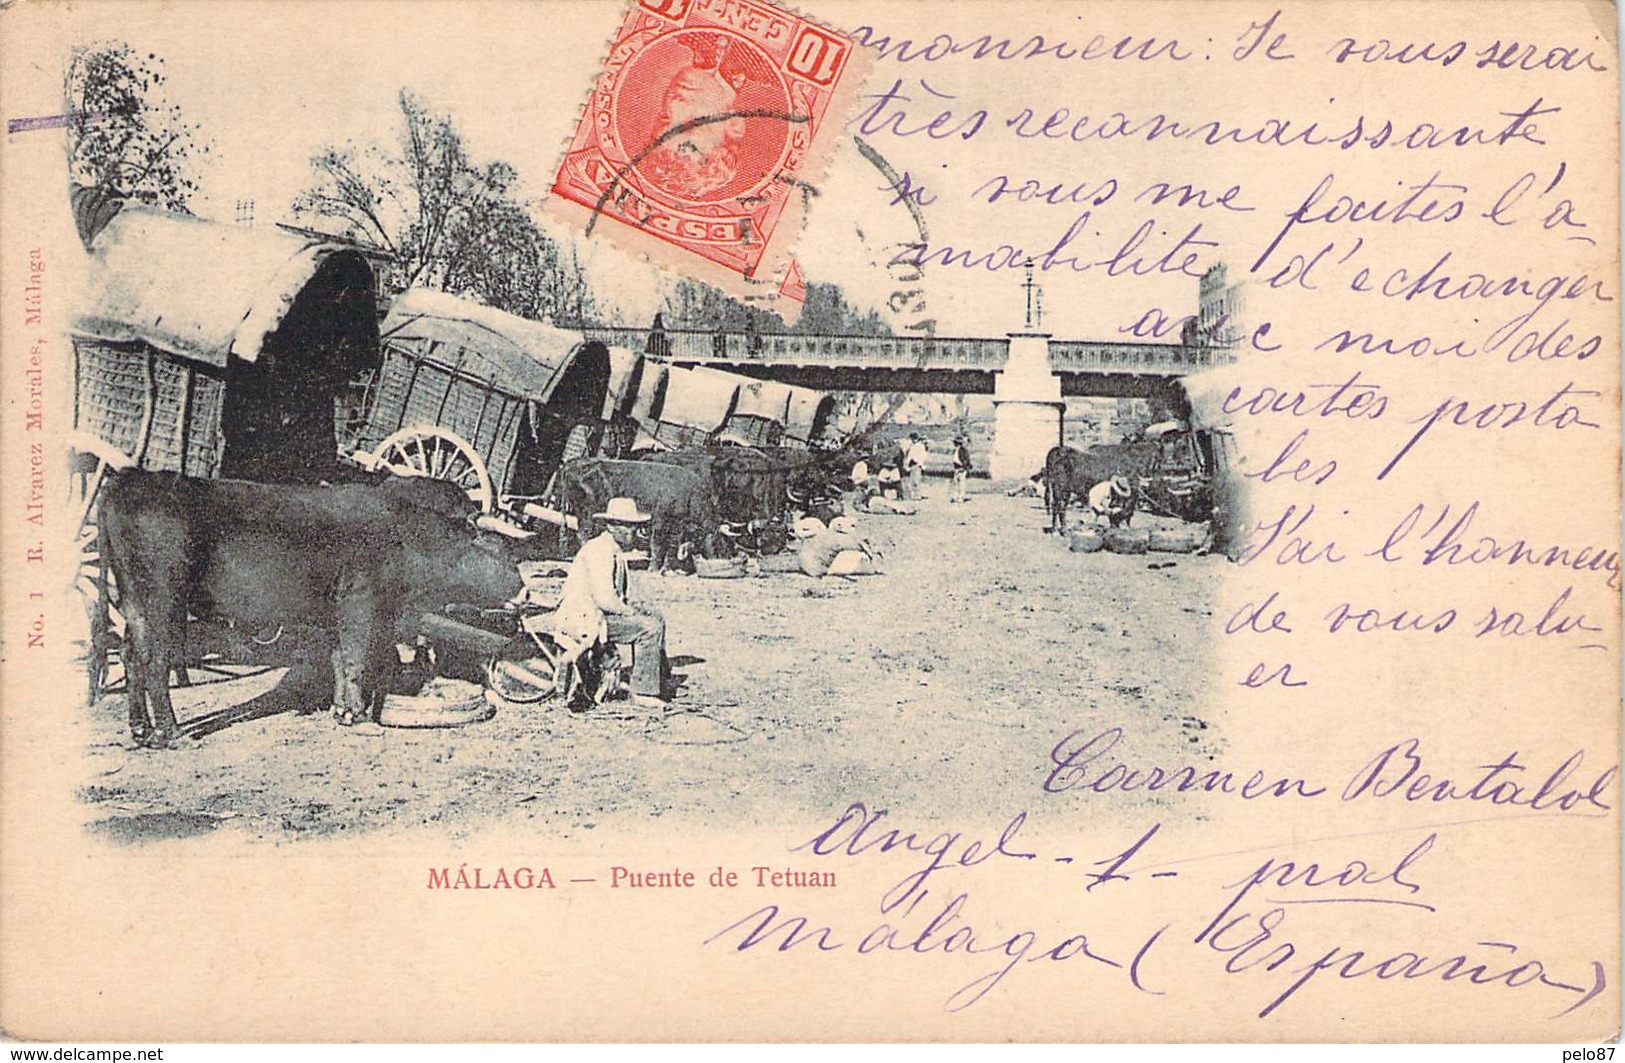 monsieur: Je vous serai
très reconnaissante
si vous me faites l'a-
mabilite d'echanger
avec moi des
cartes posta
les
J'ai l'honneur
de vous salu-
er
Carmen Bentabol
Angel - 1 - pral
Málaga (España)
MÁLAGA — Puente de Tetuan
No. 1 R. Alvarez Morales, Málaga
10
CENT
10
ESPAÑA
www.delcampe.net
pelo87